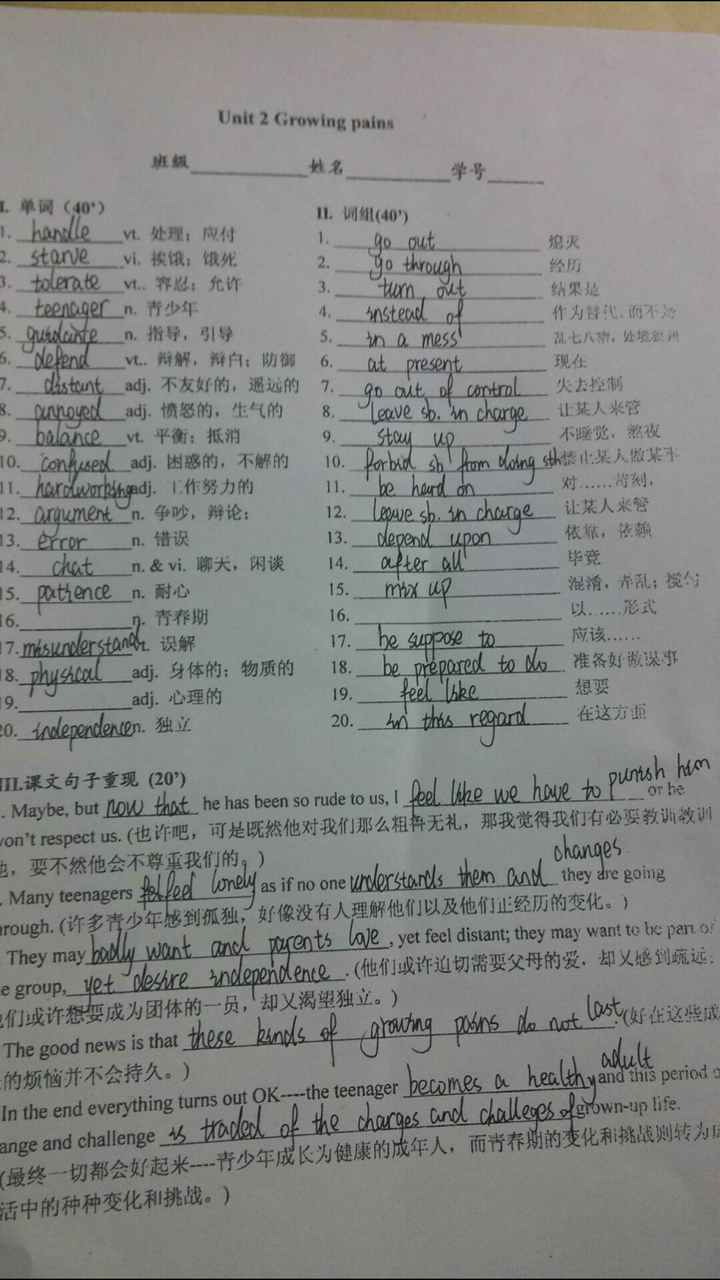 Unit 2 Growing pains
班级 姓名 学号
I. 单词（40’）
1. handle vt. 处理；应付
2. starve vi. 挨饿；饿死
3. tolerate vt.. 容忍；允许
4. teenager n. 青少年
5. guidance n. 指导，引导
6. defend vt.. 辩解，辩白；防御
7. distant adj. 不友好的，遥远的
8. annoyed adj. 愤怒的，生气的
9. balance vt. 平衡；抵消
10. confused adj. 困惑的，不解的
11. hardworking adj. 工作努力的
12. argument n. 争吵，辩论；
13. error n. 错误
14. chat n. & vi. 聊天，闲谈
15. patience n. 耐心
16. n. 青春期
17. misunderstand vt. 误解
18. physical adj. 身体的；物质的
19. adj. 心理的
20. independence n. 独立
II. 词组(40’)
1. go out 熄灭
2. go through 经历
3. turn out 结果是
4. instead of 作为替代，而不是
5. in a mess 乱七八糟，处境
6. at present 现在
7. go out of control 失去控制
8. leave sb. in charge 让某人来管
9. stay up 不睡觉，熬夜
10. forbid sb from doing sth 禁止某人做某事
11. be hard on 对……苛刻，
12. leave sb. in charge 让某人来管
13. depend upon 依靠，依赖
14. after all 毕竟
15. mix up 混淆，弄乱；搅匀
16. 以……形式
17. be suppose to 应该……
18. be prepared to do 准备好做某事
19. feel like 想要
20. in this regard 在这方面
III.课文句子重现（20’）
. Maybe, but now that he has been so rude to us, I feel like we have to punish him or he
won’t respect us. (也许吧，可是既然他对我们那么粗鲁无礼，那我觉得我们有必要教训教训
他，要不然他会不尊重我们的。)
. Many teenagers feel lonely as if no one understands them and changes they are going
through. (许多青少年感到孤独，好像没有人理解他们以及他们正经历的变化。)
They may badly want and parents love, yet feel distant; they may want to be part of
e group, yet desire independence. (他们或许迫切需要父母的爱，却又感到疏远；
他们或许想要成为团体的一员，却又渴望独立。)
The good news is that these kinds of growing pains do not last. (好在这些成
的烦恼并不会持久。)
In the end everything turns out OK----the teenager becomes a healthy adult and this period o
ange and challenge is traded of the charges and challeges of grown-up life.
(最终一切都会好起来----青少年成长为健康的成年人，而青春期的变化和挑战则转为成
活中的种种变化和挑战。)